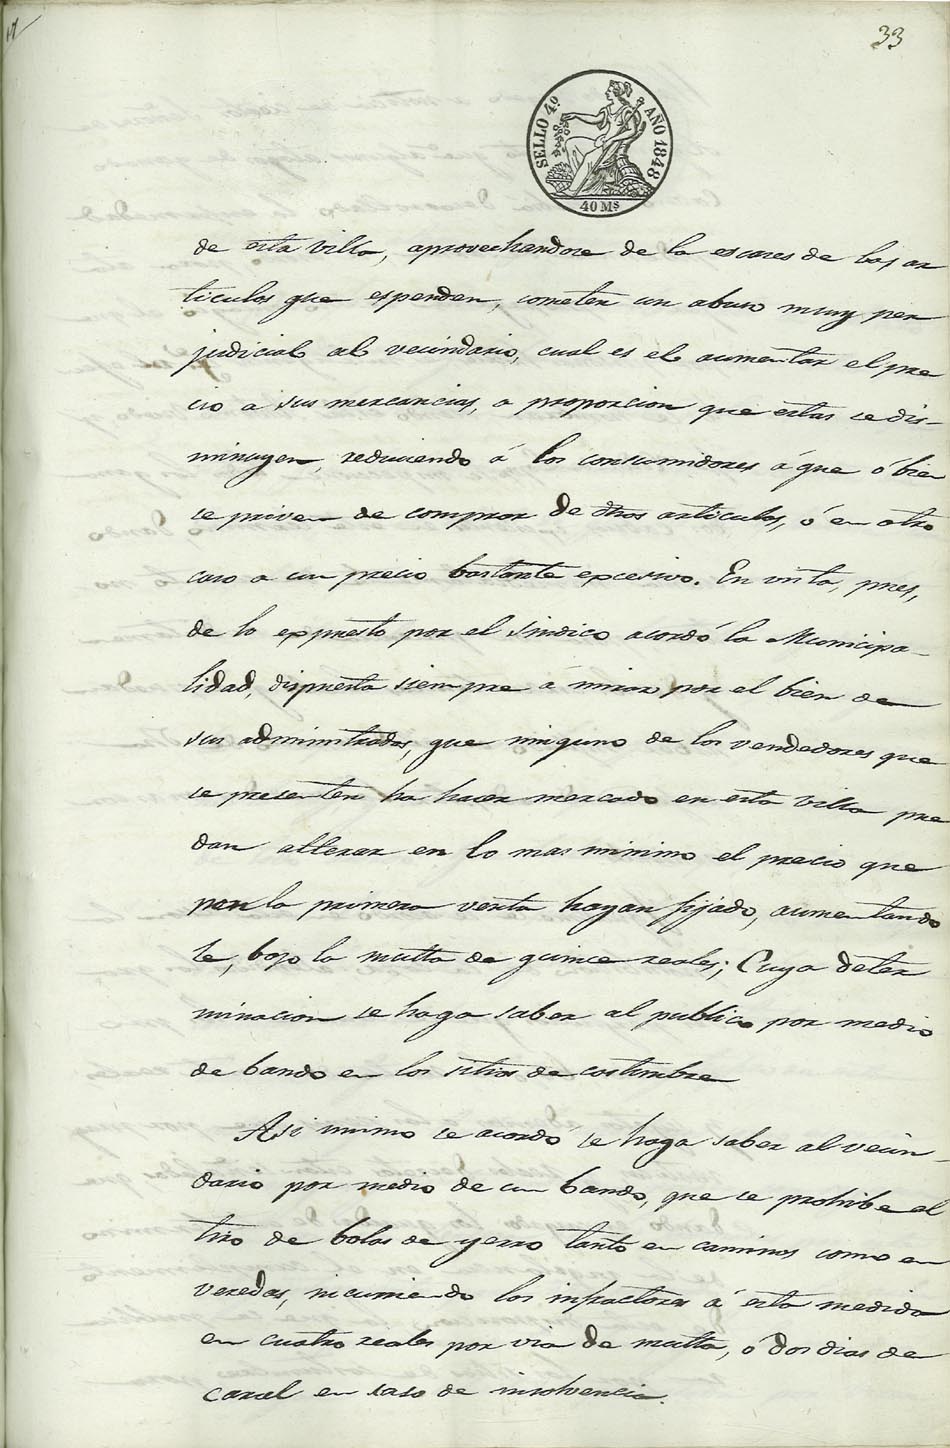 33
SELLO 4º AÑO 1848
40 Ms
de esta villa, aprovechandose de la escases de los ar
ticulos que espenden, cometen un abuso muy per
judicial al vecindario, cual es el aumentar el pre
cio a sus mercancias, a proporcion que estas se dis-
minuyen, reduciendo á los consumidores á que ó bien
se priven de comprar de dhos articulos, ó en otro
caso a un precio bastante excesivo. En vista, pues,
de lo expuesto por el Sindico acordó la Municipa-
lidad, dispuesta siempre á mirar por el bien de
sus administrados, que ninguno de los vendedores que
se presenten ha hacer mercado en esta villa pue
dan alterar en lo mas minimo el precio que
por la primera venta hayan fijado, aumentando
le, bajo la multa de quince reales; Cuya deter
minacion se haga saber al publico por medio
de bando en los sitios de costumbre
Asi mismo se acordó se haga saber al vecin-
dario por medio de un bando, que se prohibe el
tiro de bolas de yerro tanto en caminos como en
veredas, incurriendo los infractores á esta medida
en cuatro reales por via de multa, ó dos dias de
carcel en caso de insolvencia.